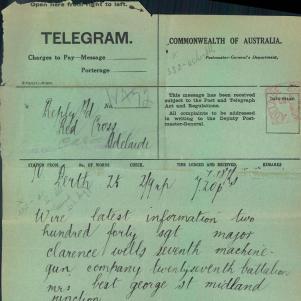 Open here from right to left.
TELEGRAM.
Charges to Pay—Message
Porterage
COMMONWEALTH OF AUSTRALIA.
Postmaster-General's Department,
This message has been received
subject to the Post and Telegraph
Act and Regulations.
All complaints to be addressed
in writing to the Deputy Post-
master-General.
Reply Pd
Red Cross
Adelaide
No.
STATION FROM,
No. of WORDS
CHECK.
TIME LODGED AND RECEIVED.
REMARKS
Perth 25 7.20p
Wire latest information two
hundred forty sgt major
clarence wells seventh machine-
gun company twentyseventh battalion
mrs best george st midland
junction